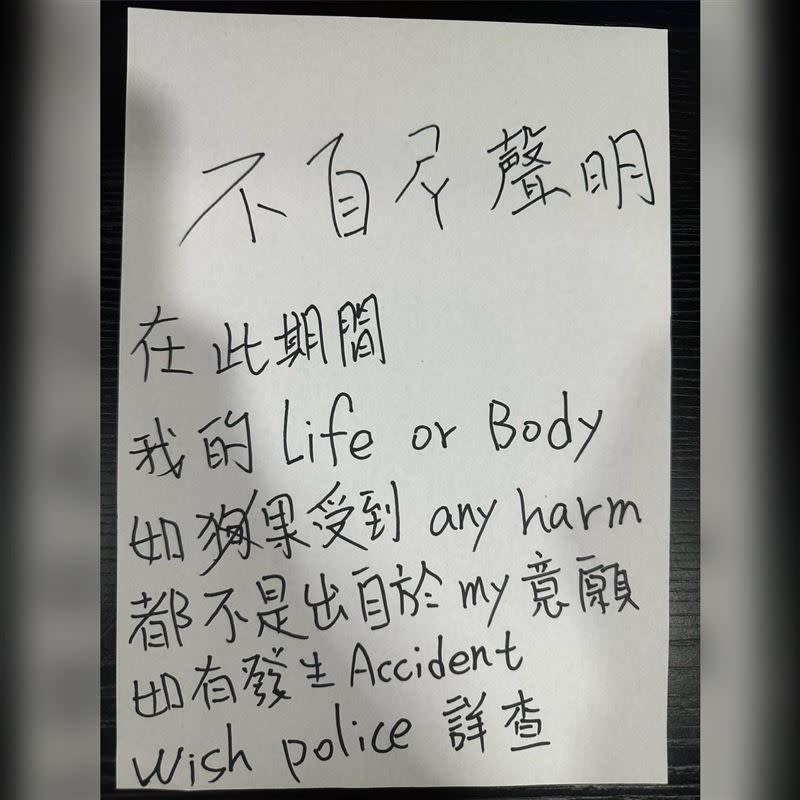 不自ㄕㄚ聲明
在此期間
我的 Life or Body
如果受到 any harm
都不是出自於 my 意願
如有發生 Accident
Wish police 詳查